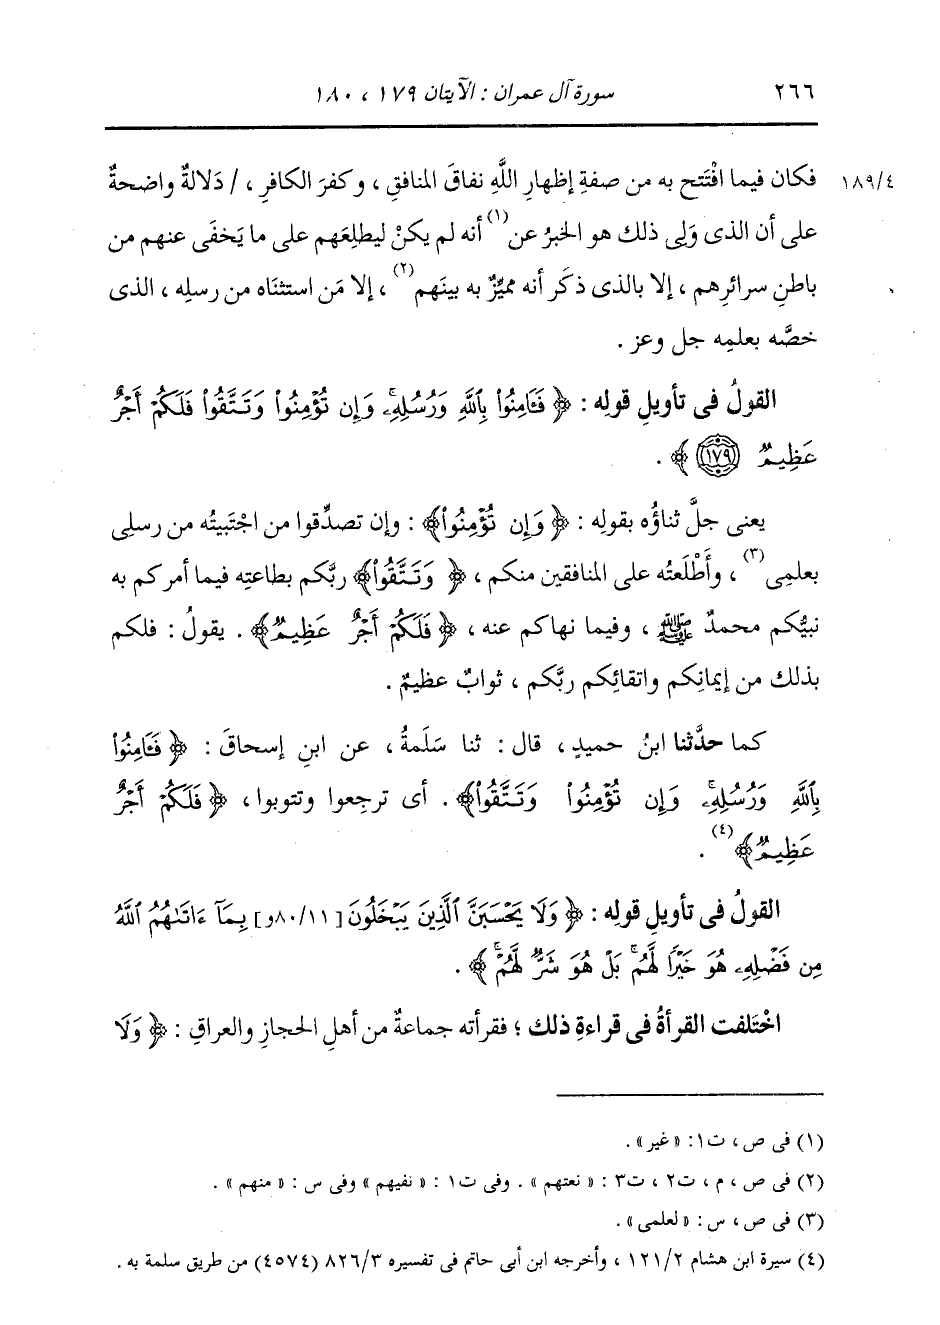 ٢٦٦ سورة آل عمران : الآيتان ١٧٩ ، ١٨٠
١٨٩/٤ فكان فيما افْتَتح به من صفةِ إظهارِ اللَّهِ نفاقَ المنافقِ ، وكفرَ الكافرِ ، / دَلالةٌ واضحةٌ
على أن الذى وَلِى ذلك هو الخبرُ عن(١) أنه لم يكنْ ليطلِعَهم على ما يَخفَى عنهم من
باطنِ سرائرِهم ، إلا بالذى ذكَر أنه مميِّزٌ به بينَهم(٢) ، إلا مَن استثنَاه من رسلِه ، الذى
خصَّه بعلمِه جل وعز .
القولُ فى تأويلِ قولِه : ﴿ فَـَٔامِنُوا۟ بِٱللَّهِ وَرُسُلِهِۦۚ وَإِن تُؤْمِنُوا۟ وَتَتَّقُوا۟ فَلَكُمْ أَجْرٌ
عَظِيمٌ ١٧٩ ﴾ .
يعنى جلَّ ثناؤُه بقولِه : ﴿ وَإِن تُؤْمِنُوا۟﴾ : وإن تصدِّقوا من اجْتَبيتُه من رسلِى
بعلمِى(٣) ، وأَطْلَعتُه على المنافقين منكم ، ﴿ وَتَتَّقُوا۟﴾ ربَّكم بطاعتِه فيما أمركم به
نبيُّكم محمدٌ ﷺ ، وفيما نهاكم عنه ، ﴿ فَلَكُمْ أَجْرٌ عَظِيمٌ﴾ . يقولُ : فلكم
بذلك من إيمانِكم واتقائِكم ربَّكم ، ثوابٌ عظيمٌ .
كما حدَّثنا ابنُ حميدٍ ، قال : ثنا سَلَمةُ ، عن ابنِ إسحاقَ : ﴿ فَـَٔامِنُوا۟
بِٱللَّهِ وَرُسُلِهِۦۚ وَإِن تُؤْمِنُوا۟ وَتَتَّقُوا۟﴾ . أى ترجِعوا وتتوبوا ، ﴿ فَلَكُمْ أَجْرٌ
عَظِيمٌ﴾(٤) .
القولُ فى تأويلِ قولِه : ﴿ وَلَا يَحْسَبَنَّ ٱلَّذِينَ يَبْخَلُونَ [٨٠/١١و] بِمَآ ءَاتَىٰهُمُ ٱللَّهُ
مِن فَضْلِهِۦ هُوَ خَيْرًا لَّهُمۖ بَلْ هُوَ شَرٌّ لَّهُمْۖ ﴾ .
اخْتَلفت القرأةُ فى قراءةِ ذلك ؛ فقرأته جماعةٌ من أهلِ الحجازِ والعراقِ : ﴿ وَلَا
(١) فى ص ، ت١: « غير» .
(٢) فى ص ، م ، ت٢ ، ت٣ : « نعتهم » . وفى ت١ : « نفيهم » وفى س : « منهم » .
(٣) فى ص ، س : « لعلمى» .
(٤) سيرة ابن هشام ١٢١/٢ ، وأخرجه ابن أبى حاتم فى تفسيره ٨٢٦/٣ (٤٥٧٤) من طريق سلمة به .